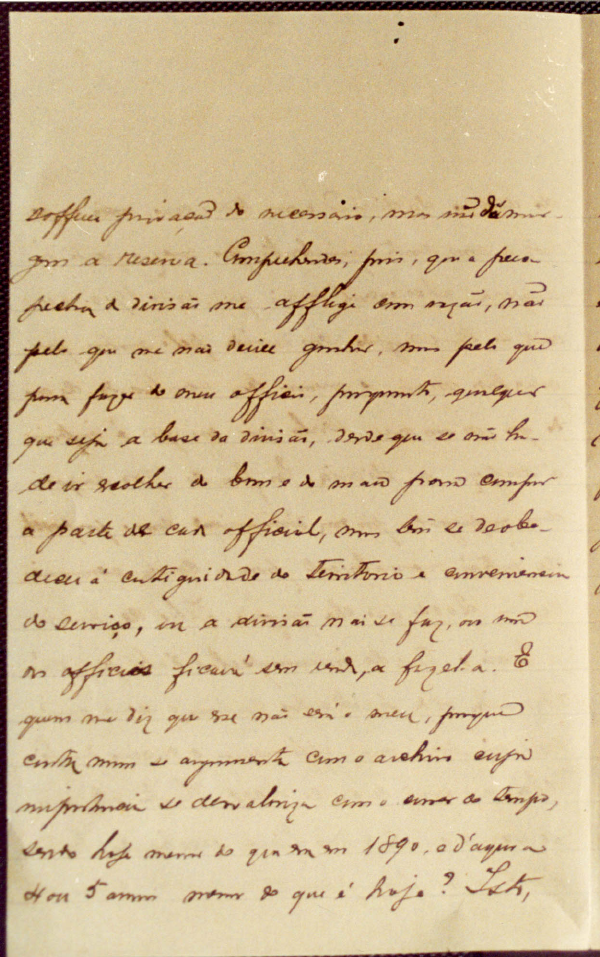 soffreu privação do necessario, mas não dá mar-
gem a reserva. Comprehendes, pois, que a
de divisão me afflige com razão, não
pelo que me não deixe ganhar, mas pelo que
para fazer do meu officio, porquanto, qualquer
que seja a base da divisão, desde que se não ha-
de ir escolher do bom e do mau para compor
a parte de cada official, mas sim se obe-
deceu á contiguidade do territorio e conveniencia
do serviço, ou a divisão não se faz, ou um
os officios ficará sem renda, a fazel-a. E
quem me diz que esse não será o meu, porque
contra mim se argumenta com o archivo cuja
importancia se desvalorisa com o correr do tempo,
sendo hoje menor do que era em 1890, e d'aqui a
4 ou 5 annos menor do que é hoje? Isto,